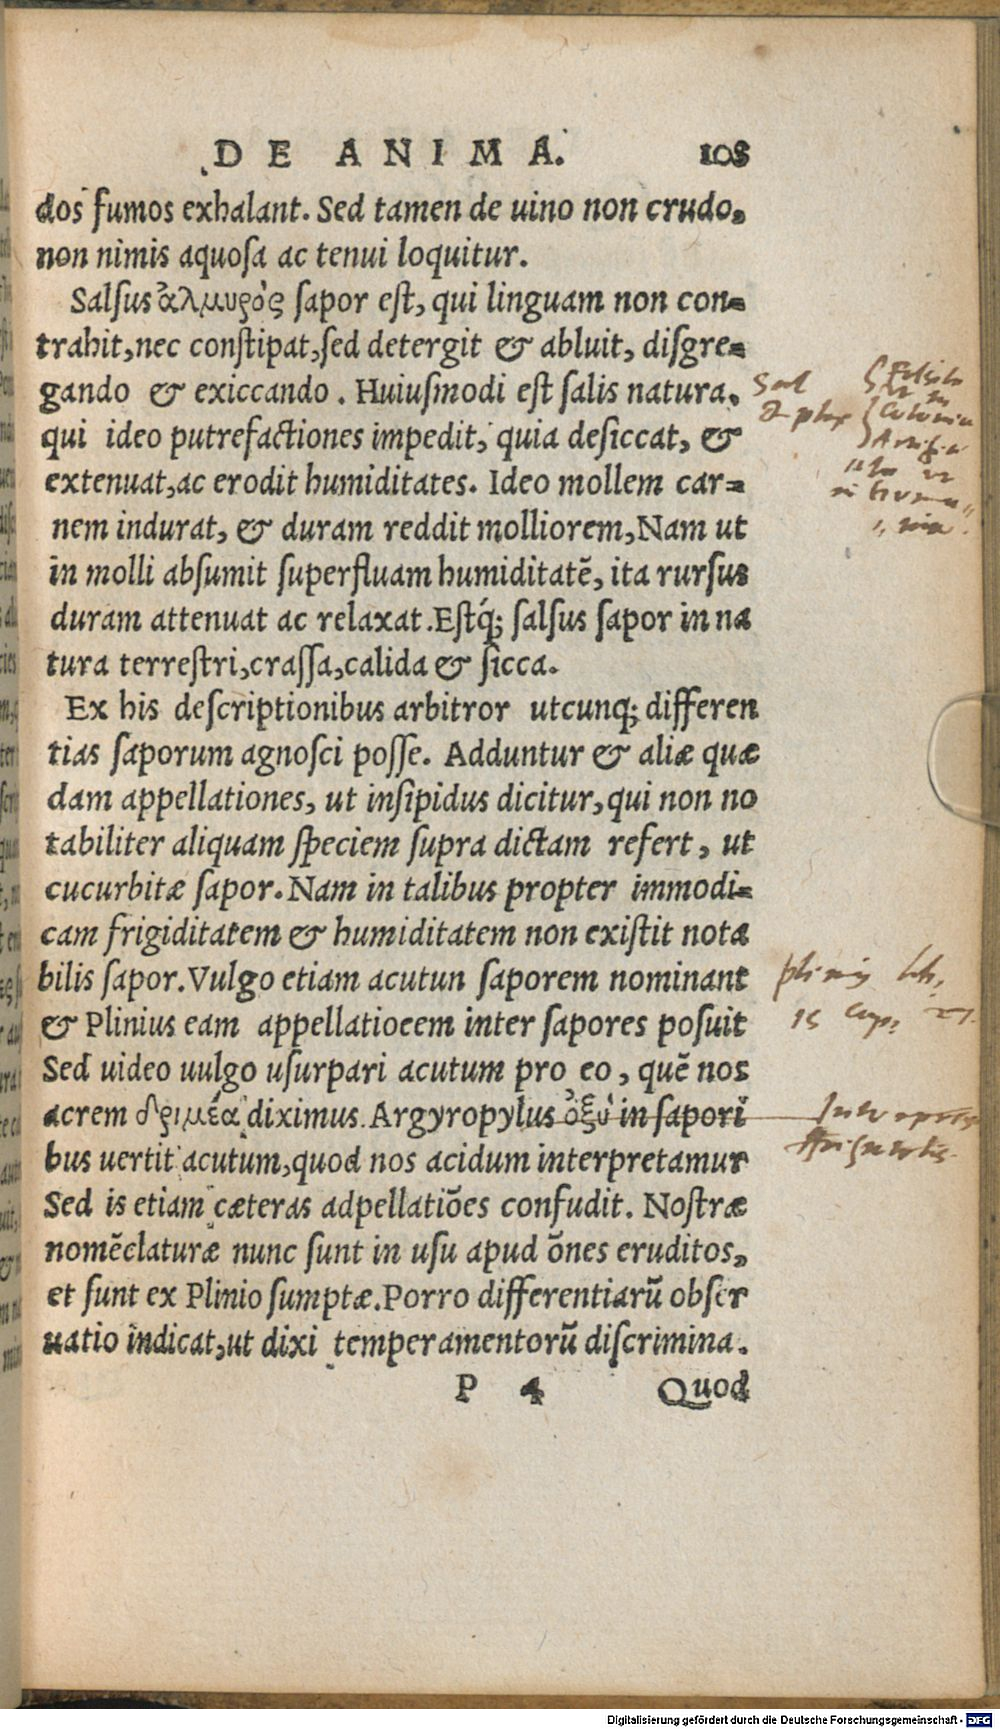 DE ANIMA. 108
dos fumos exhalant. Sed tamen de uino non crudo,
non nimis aquoſa ac tenui loquitur.
Salſus ἁλμυρὸς ſapor eſt, qui linguam non con=
trahit, nec conſtipat, ſed detergit & abluit, diſgre=
gando & exiccando. Huiuſmodi eſt ſalis natura,
qui ideo putrefactiones impedit, quia deſiccat, &
extenuat, ac erodit humiditates. Ideo mollem car=
nem indurat, & duram reddit molliorem, Nam ut
in molli abſumit ſuperfluam humiditatē, ita rurſus
duram attenuat ac relaxat. Eſtq́; ſalſus ſapor in na
tura terreſtri, craſſa, calida & ſicca.
Ex his deſcriptionibus arbitror utcunq; differen
tias ſaporum agnoſci poſſe. Adduntur & aliæ quæ
dam appellationes, ut inſipidus dicitur, qui non no
tabiliter aliquam ſpeciem ſupra dictam refert, ut
cucurbitæ ſapor. Nam in talibus propter immodi=
cam frigiditatem & humiditatem non exiſtit nota
bilis ſapor. Vulgo etiam acutun ſaporem nominant
& Plinius eam appellatiocem inter ſapores poſuit
Sed uideo uulgo uſurpari acutum pro eo, quē nos
acrem δριμέα diximus. Argyropylus ὀξὺ in ſapori
bus uertit acutum, quod nos acidum interpretamur
Sed is etiam cæteras adpellatiōes confudit. Noſtræ
nomēclaturæ nunc ſunt in uſu apud ōnes eruditos,
et ſunt ex Plinio ſumptæ. Porro differentiarū obſer
uatio indicat, ut dixi temperamentorū diſcrimina.
P 4 Quod
Sal
plinius lib.
15 cap. 27.
Digitalisierung gefördert durch die Deutsche Forschungsgemeinschaft - DFG